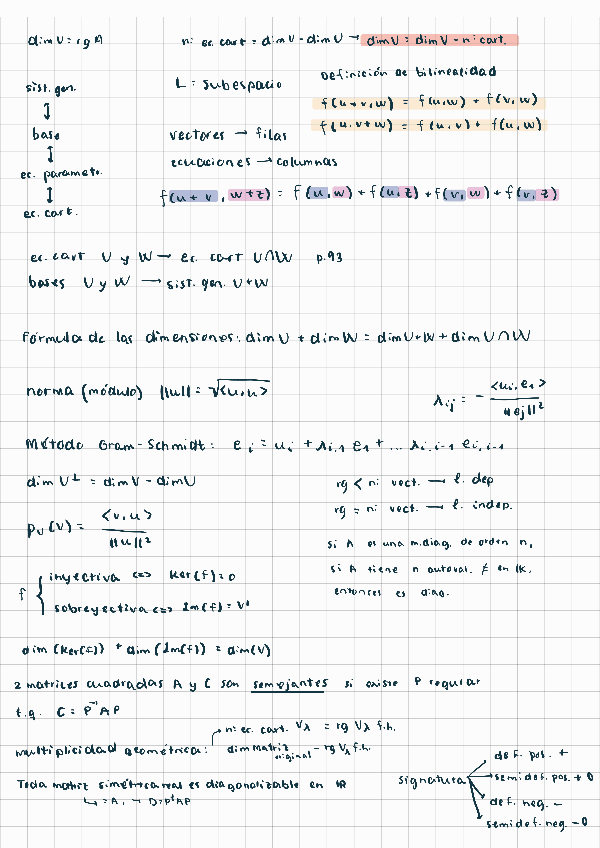 dim U = rg A
nº ec. cart = dim V - dim U → dim U = dim V - nº cart.
Definición de bilinealidad
sist. gen.
L = subespacio
f(u+v,w) = f(u,w) + f(v,w)
↕
f(u,v+w) = f(u,v) + f(u,w)
base
vectores → filas
↕
ecuaciones → columnas
ec. paramét.
↕
f(u+v, w+z) = f(u,w) + f(u,z) + f(v,w) + f(v,z)
ec. cart.
ec. cart U y W → ec. cart U∩W p.93
bases U y W → sist. gen. U+W
Fórmula de las dimensiones: dim U + dim W = dim U+W + dim U∩W
norma (módulo) ||u|| = √<u,u>
λij = - <ui,e1> / ||ej||²
Método Gram-Schmidt: ei = ui + λi,1 e1 + ... λi,i-1 ei,i-1
dim U⊥ = dim V - dim U
rg < nº vect. → l. dep
rg = nº vect. → l. indep.
pU(v) = <v,u> / ||u||²
si A es una m.diag. de orden n,
si A tiene n autoval. ≠ en K,
entonces es diag.
f { inyectiva <=> Ker(f)=0
sobreyectiva <=> Im(f)=V'
dim (Ker(f)) + dim (Im(f)) = dim(V)
2 matrices cuadradas A y C son semejantes si existe P regular
t.q. C = P⁻¹AP
nº ec. cart. Vλ = rg Vλ f.h.
multiplicidad geométrica: dim matriz original - rg Vλ f.h.
Toda matriz simétrica real es diagonalizable en R
signatura
def. pos. +
semidef. pos. + 0
def. neg. -
semidef. neg. - 0